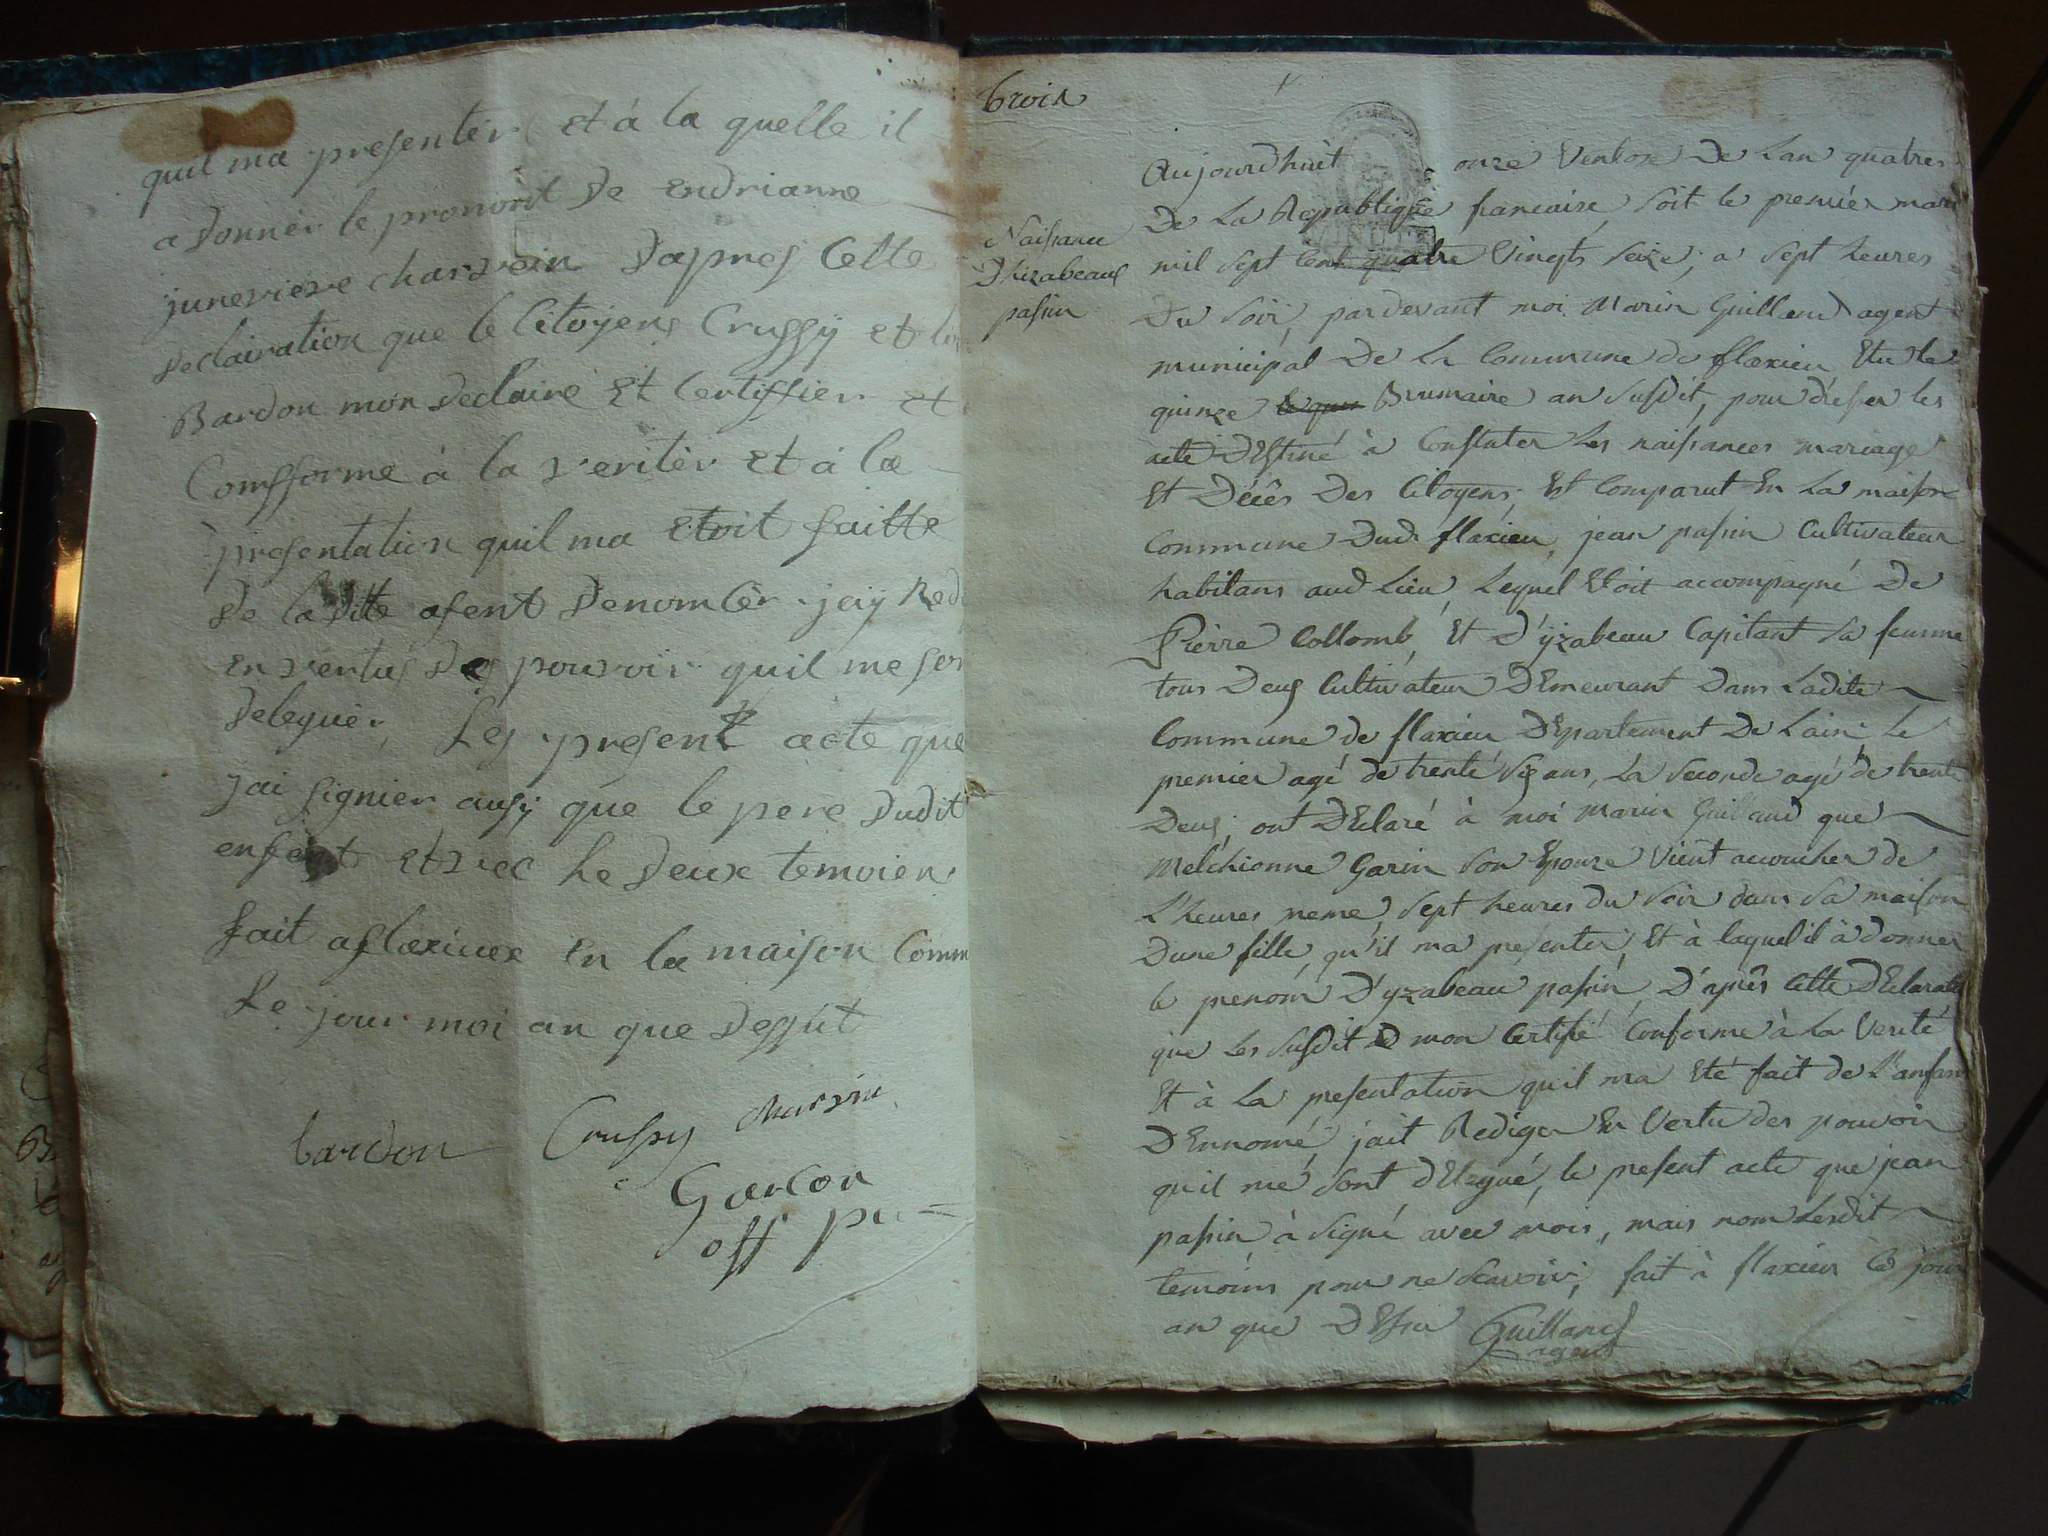 quil ma presenter et à la quelle il
a donnér le pronont de endrianne
junevieve charvein dapres Cette
declairation que le Citoyens Crussÿ et
Bardon mon declaire et Certiffier et
Comfforme à la veritèr et à la
presentation quil ma etoit faitte
de la ditte afent denomèr jaÿ
en vertus des pouvoir quil me son
deleguér, Les present acte que
jai signier ausÿ que le pere dudit
enfent et avec le deux temoien
fait aflaxieux en la maison Comm
Le jour moi an que dessut
bardon Crussy charvin
Garcon
off pu
trois
Naissance
Dhizabeaux
passin
Aujourdhuit onze Ventose De Lan quatres
De La Republique francaise, soit le premiér mars
mil sept Cent quatre Vingts seize; a sept heures
Du soir, pardevant moi Marin Guilland agent
municipal De La Commune de flaxieu Elu le
quinze Brumaire an susdit, pour dresser les
acte DEstiné à Constater Les naissances mariage
Et Décês Des Citoyens, Est Comparut En La maison
Commune Dud flaxieu, jean passin Cultivateur
habitans aud Lieu, Lequel Etoit accompagné De
Pierre Collomb, Et D'ÿzabeau Capitant sa femme
tous Deux Cultivateur DEmeurant Dans Ladite
Commune de flaxieu DEpartement De Lain Le
premier agé de trente six ans, La seconde agé de trente
Deux, ont DEclaré à moi Marin Guilland que
Melchionne Garin son Epouze Vient accoucher de
L'heures meme, sept heures du soir dans sa maison
Dune fille, qu'il ma presenter, Et à laquel il à donner
le prenom D'yzabeau passin, D'après Cette DEclarat
que Les susdit mon Certifié Conforme à La Verité
Et à La presentation quil ma Eté fait de L'anfan
DEnnomé, jait Rediger En Vertu des pouvoir
qu il me sont dElegué, le present acte que jean
passin à signé avec mois, mais nom Lesdit
temoins pour ne scavoir, fait à flaxieu Le jour
an que DEssu Guilland
agent